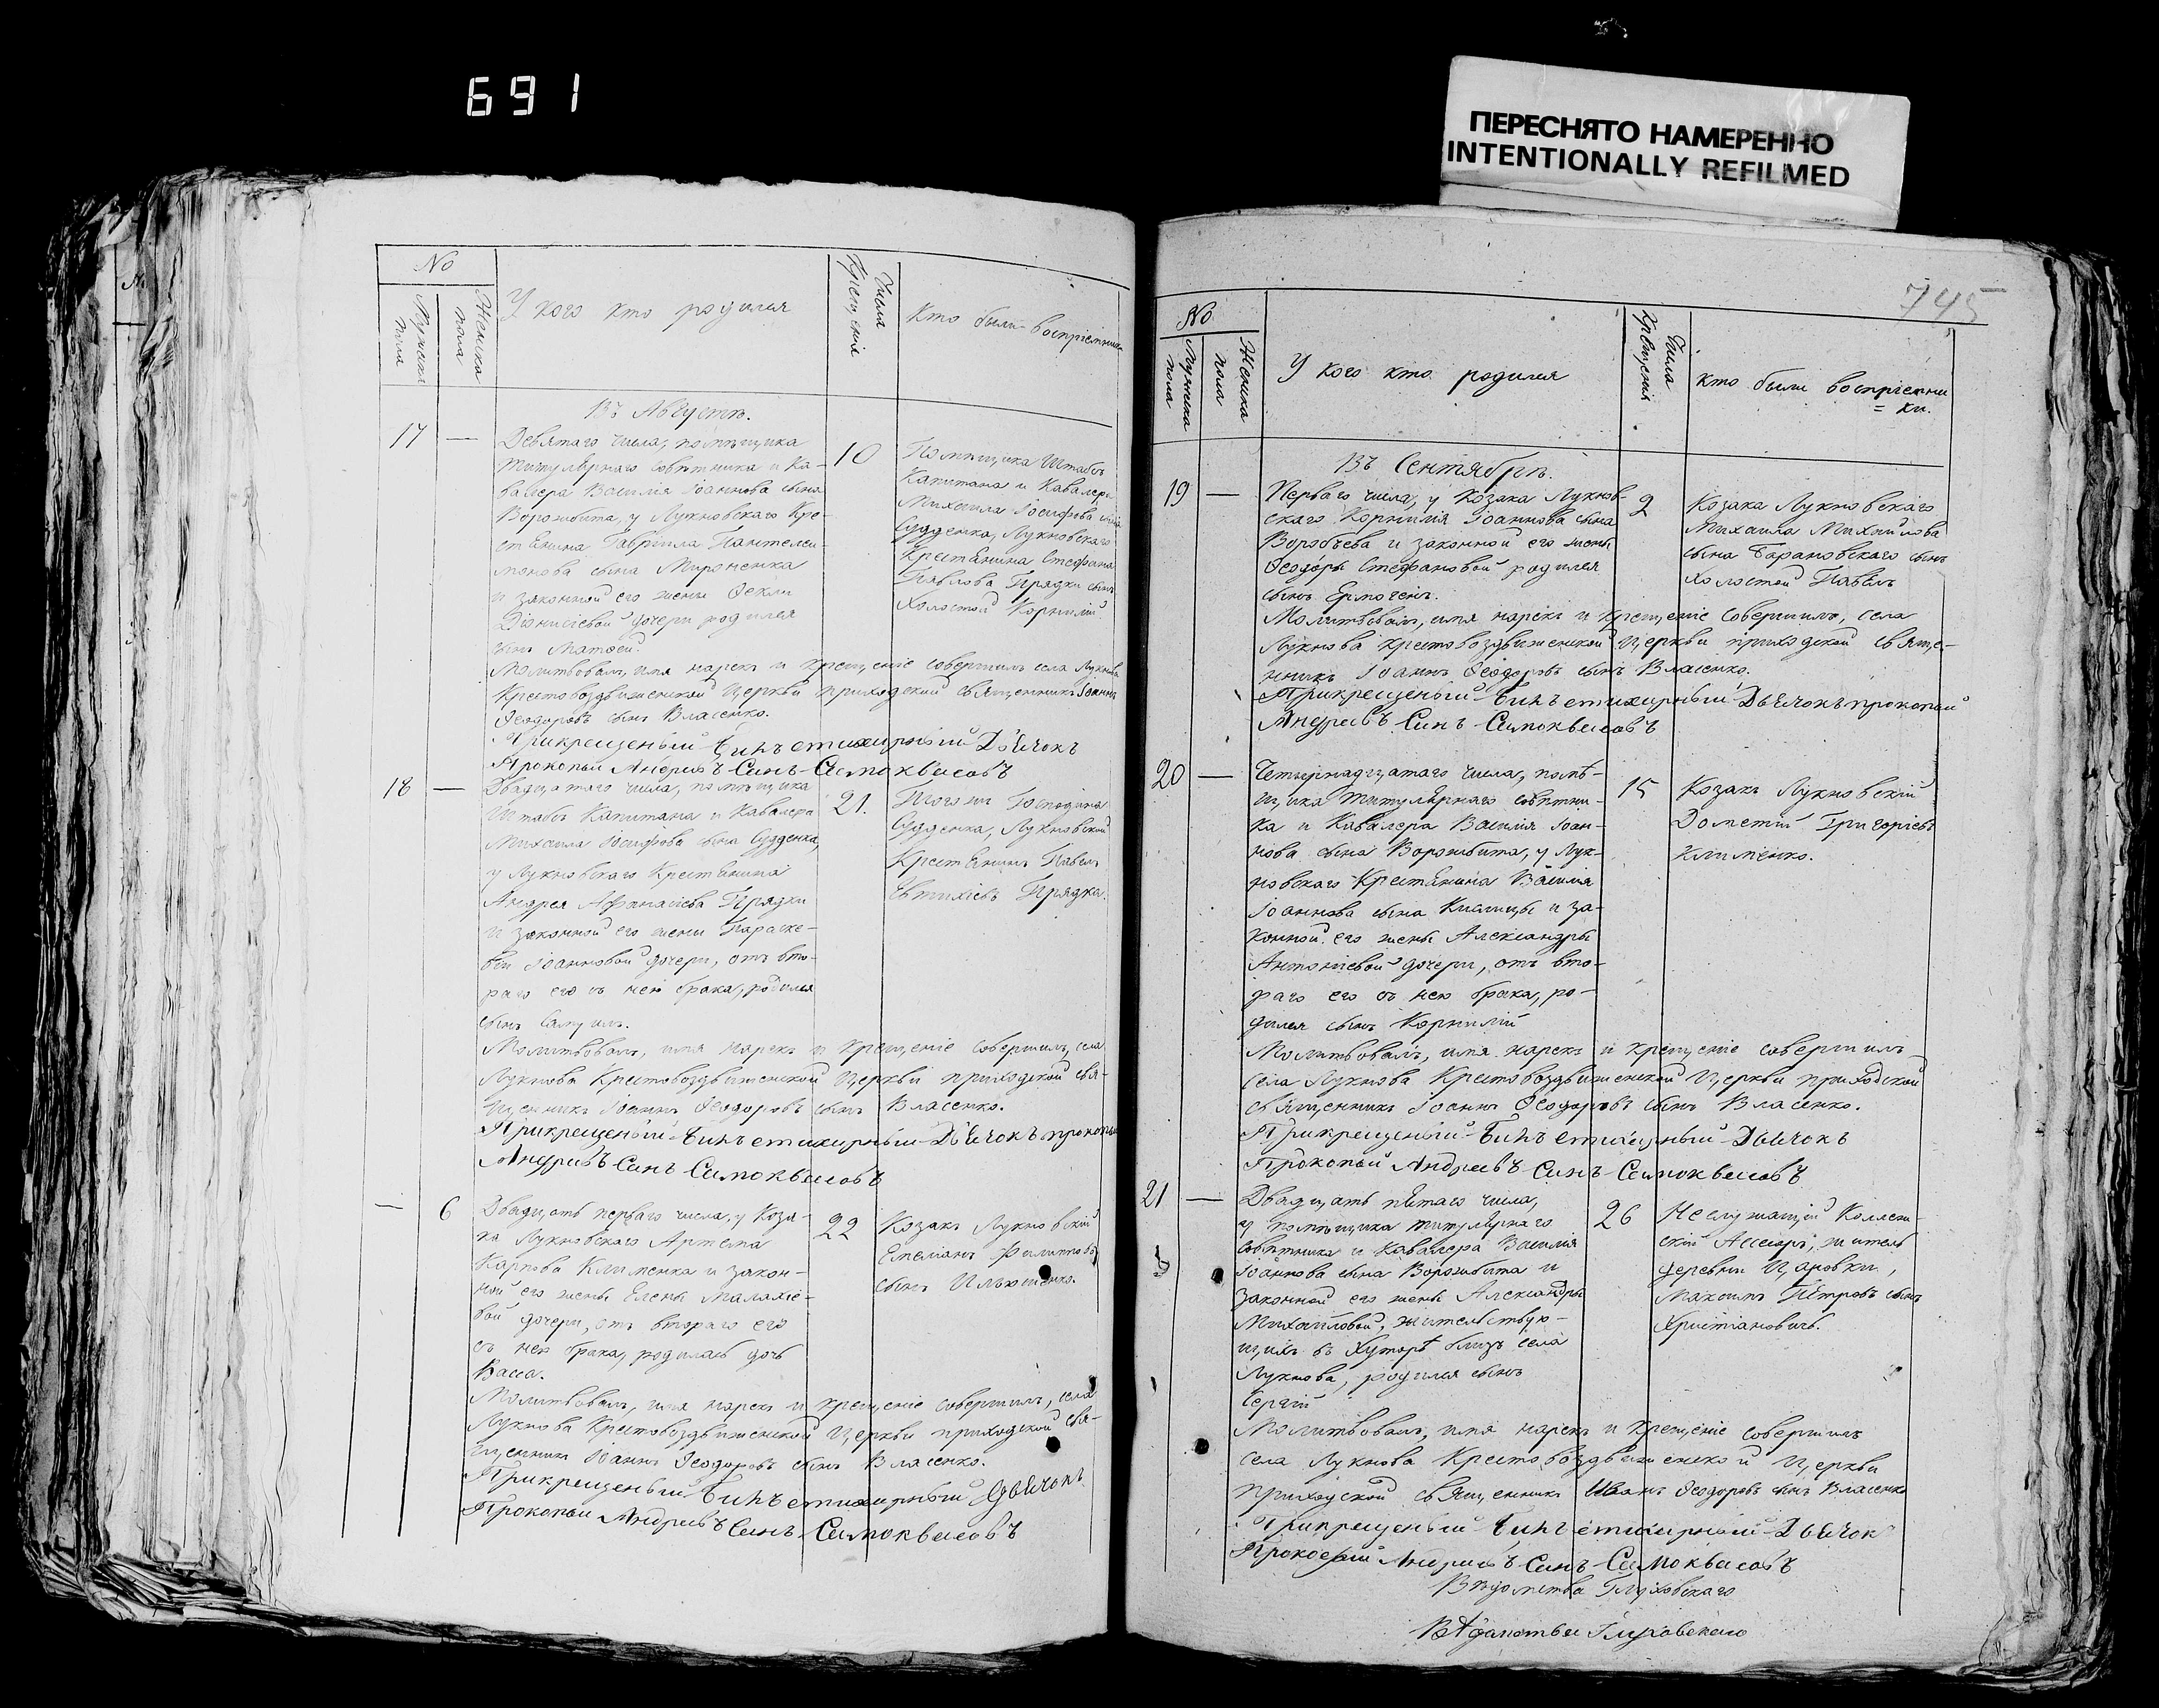 691
ПЕРЕСНЯТО НАМЕРЕННО
INTENTIONALLY REFILMED
№
Мужеска пола
Женска пола
У кого кто родился
Числа крещенія
Кто были воспріемники
Въ Августѣ.
17 —
Девятаго числа, помѣщика
титулярнаго Совѣтника и Ка-
валера Василія Іоаннова сына
Ворожбита, у Лукновскаго Кре-
стянина Гавріила Пантелеи-
монова сына Мироненка
и законной его жены Феклы
Діонисіевой дочери родился
сынъ Матфей.
10
Помѣщика Штабсъ
Капитана и Кавалера
Михаила Іосифова сына
Судденка, Лукновскаго
Крестянина Стефана
Павлова Прядки сынъ
Холостой Корнилій
Молитвовалъ, имя нарекъ и крещеніе совершилъ села Лукнова
Крестовоздвиженской Церкви приходской священникъ Іоаннъ
Феодоровъ сынъ Власенко.
Прикрещеный Бихъ стихирный Дьячокъ
Прокопъи Андриевъ Синъ Самоквасовъ
18 —
Двадцатаго числа, помѣщика
Штабсъ Капитана и Кавалера
Михаила Іосифова сына Судденка,
у Лукновскаго Крестянина
Андрея Афанасіева Прядки
и законной его жены Параске-
віи Іоанновой дочери, отъ вто-
раго его съ нею брака, родился
сынъ Самуилъ.
21.
Тогожъ Господина
Судденка, Лукновской
Крестянинъ Павелъ
Евтихіевъ Прядка.
Молитвовалъ, имя нарекъ и крещеніе совершилъ, села
Лукнова Крестовоздвиженской Церкви приходской свя-
щенникъ Іоаннъ Феодоровъ сынъ Власенко.
Прикрещеный Бихъ стихирный Дьячокъ Прокопъи
Андриевъ Синъ Самоквасовъ
— 6
Двадцать перваго числа, у Коза-
ка Лукновскаго Артема
Карпова Клименка и закон-
ной его жены Елены Малахіе-
вой дочери, отъ втораго его
съ нею брака, родилась дочь
Васса.
22
Козакъ Лукновскій
Емеліанъ Филиповъ
сынъ Ильюшенко.
Молитвовалъ, имя нарекъ и крещеніе совершилъ, села
Лукнова Крестовоздвиженской Церкви приходской свя-
щенникъ Іоаннъ Феодоровъ сынъ Власенко.
Прикрещеный Бихъ стихирный Дьячокъ
Прокопъи Андриевъ Синъ Самоквасовъ
745
№
Мужеска пола
Женска пола
У кого кто родился
Числа крещенія
кто были воспріемни
= ки.
Въ Сентябрѣ.
19 —
Перваго числа, у Козака Лукнов-
скаго Корнилія Іоаннова сына
Воробьева и законной его жены
Феодоры Стефановой родился
сынъ Ермогенъ.
2
Козака Лукновскаго
Михаила Михайлова
сына Барановскаго сынъ
Холостой Павелъ
Молитвовалъ, имя нарекъ и крещеніе совершилъ, села
Лукнова Крестовоздвиженской Церкви приходской свяще-
нникъ Іоаннъ Феодоровъ сынъ Власенко.
Прикрещеный Бихъ стихирный Дьячокъ Прокопъй
Андриевъ Синъ Самоквасовъ
20 —
Четырнадцатаго числа, помѣ-
щика титулярнаго совѣтни-
ка и Кавалера Василія Іоан-
нова сына Ворожбита, у Лук-
новскаго Крестянина Василія
Іоаннова сына Кислицы и за-
конной его жены Александры
Антоніевой дочери, отъ вто-
раго его съ нею брака, ро-
дился сынъ Корнилій
15
Козакъ Лукновскій
Дометій Григоріевъ
Клименко.
Молитвовалъ, имя нарекъ и крещеніе совершилъ
села Лукнова Крестовоздвиженской Церкви приходской
священникъ Іоаннъ Феодоровъ сынъ Власенко.
Прикрещеный Бихъ стихирный Дьячокъ
Прокопъй Андриевъ Синъ Самоквасовъ
21 —
Двадцать пятаго числа,
у помѣщика титулярнаго
совѣтника и Кавалера Василія
Іоаннова сына Ворожбита и
законной его жены Александры
Михайловой, жительствую-
щихъ въ Хуторѣ близъ села
Лукнова, родился сынъ
Сергій
26
Неслужащій Коллеж-
скій Ассесоръ, житель
деревни Царовки,
Максимъ Петровъ сынъ
Христіановичъ.
Молитвовалъ, имя нарекъ и крещеніе совершилъ
села Лукнова Крестовоздвиженской Церкви
приходской священникъ Иванъ Феодоровъ сынъ Власенко
Прикрещеный Бихъ стихирный Дьячок
Прокопъй Андриевъ Синъ Самоквасовъ
Вѣдомства Глуховскаго
Вѣдомства Глуховскаго